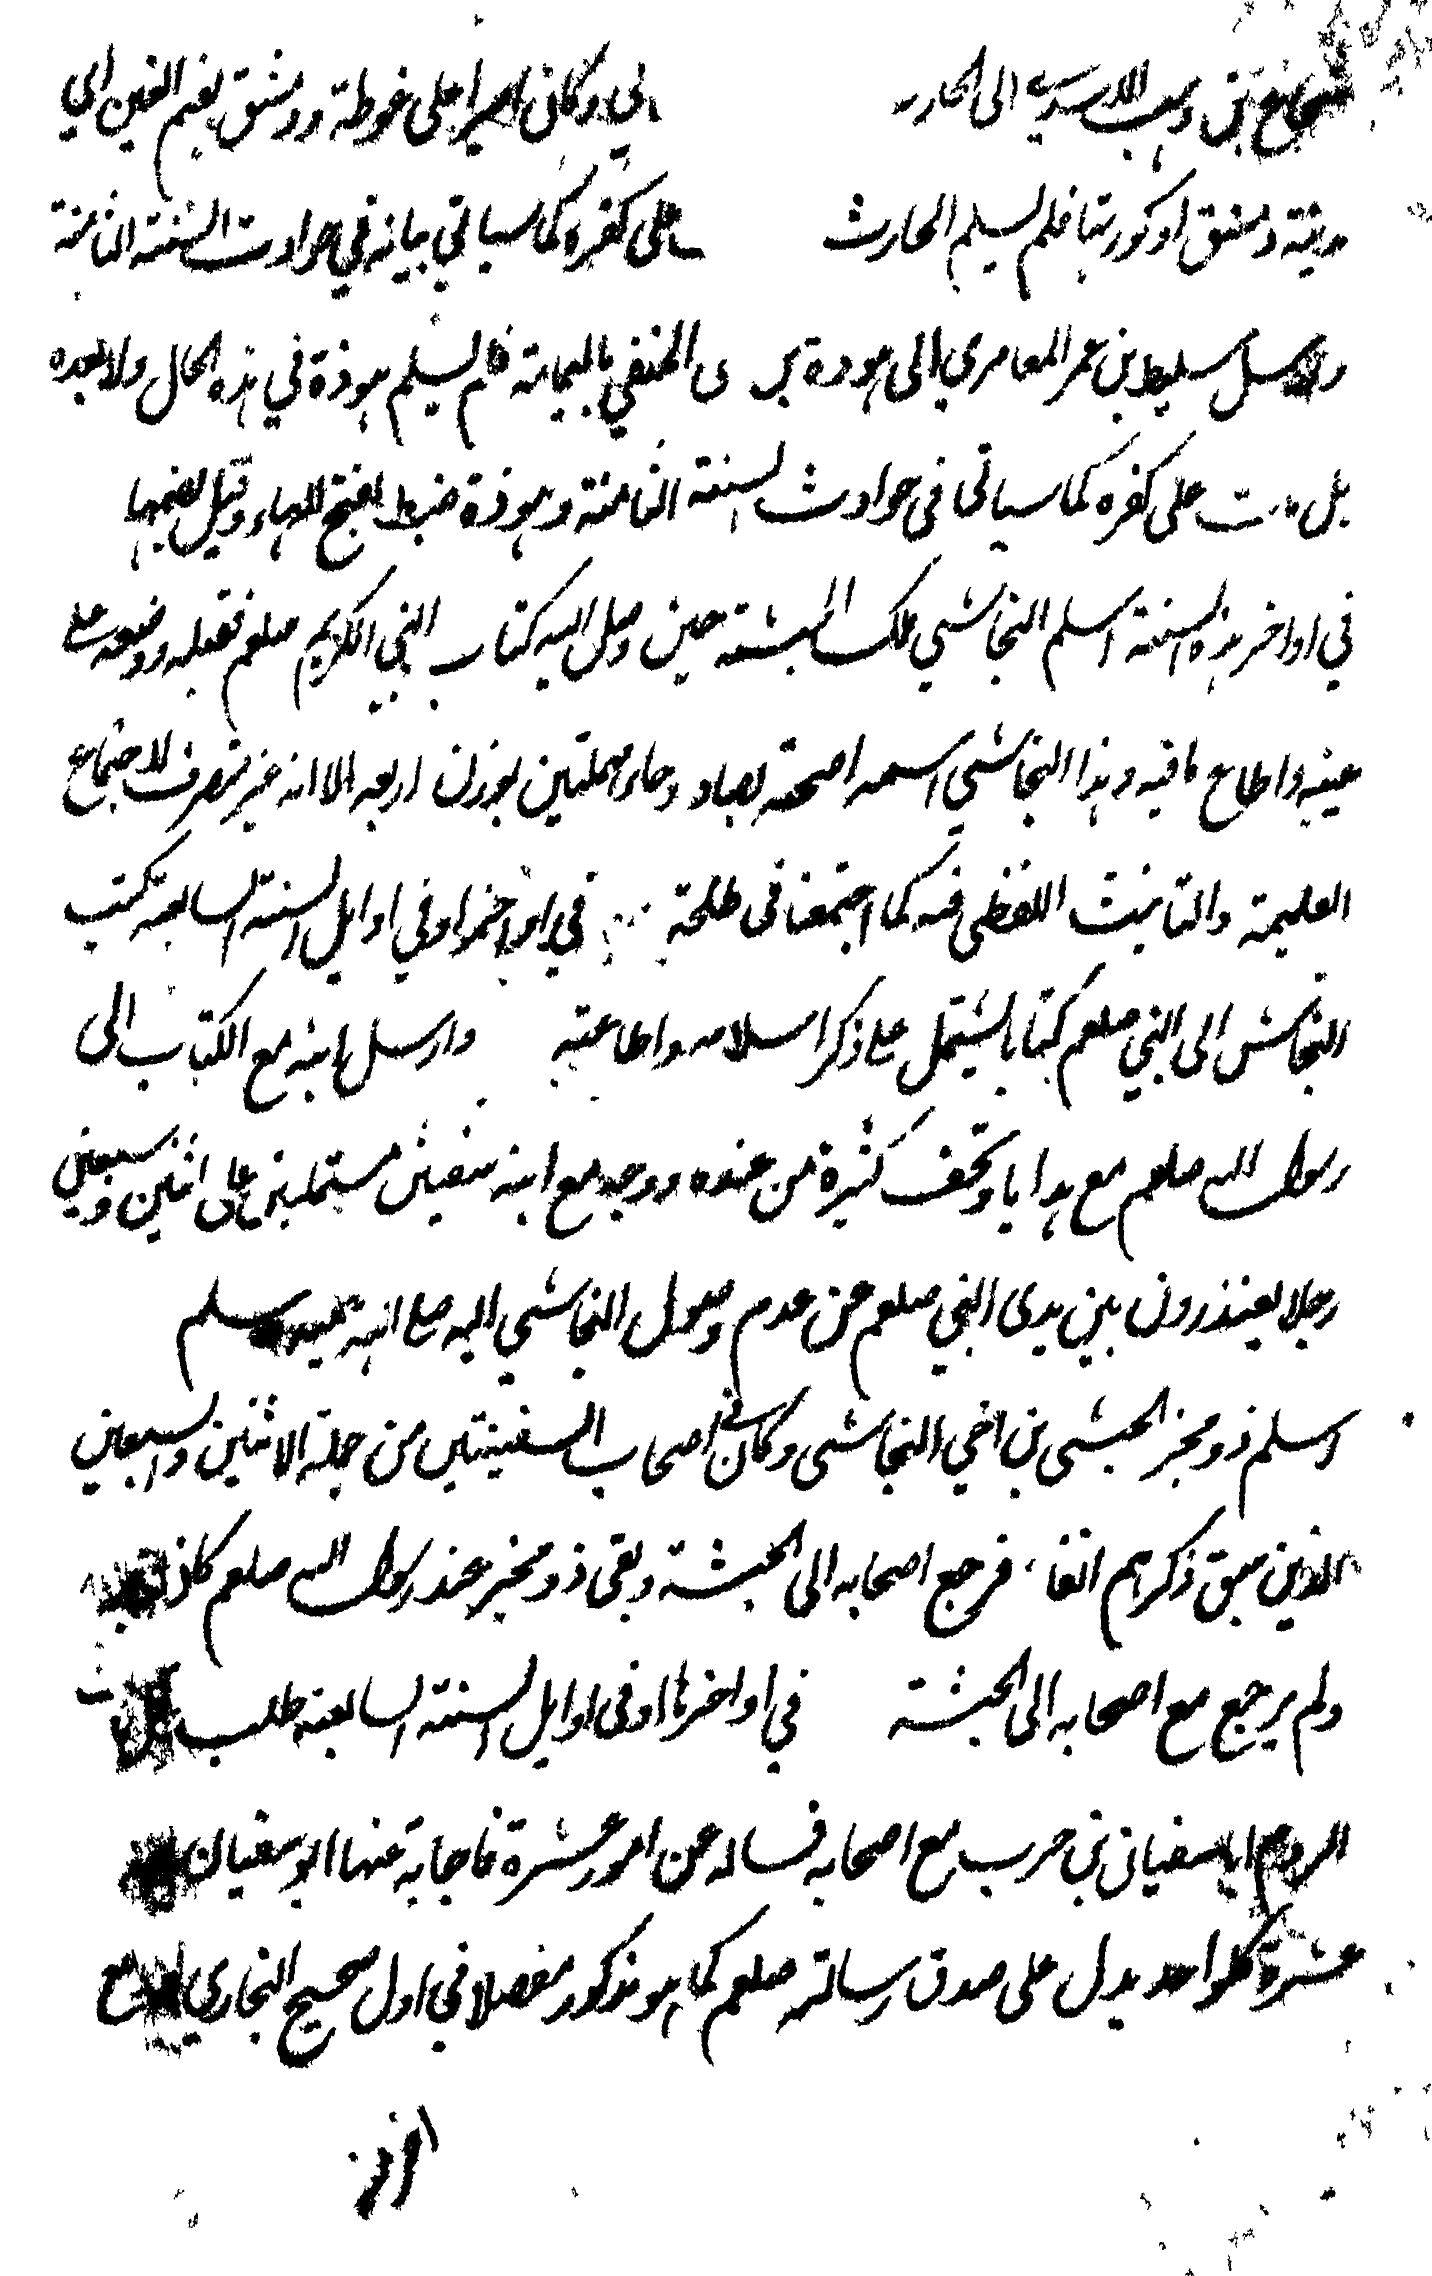 شجاع بن وهب الاسدي الى الحارث ني وكان اميرا على غوطة دمشق بضم الغين اي
مدينة دمشق او كورتها فلم يسلم الحارث على كفره كما سياتي بيانه في حوادث السنة الثامنة
وارسل سليط بن عمر العامري الى هوذة بن ى الحنفي باليمامة فلم يسلم هوذة في هذه الحال ولا بعده
بل مات على كفره كما سياتي في حوادث السنة الثامنة وهوذة ضبط بفتح الهاء وقيل بضمها
في اواخر هذه السنة اسلم النجاشي ملك الحبشة حين وصل اليه كتاب النبي الكريم صلعم فقبله ووضعه على
عينيه واطاع ما فيه وهذا النجاشي اسمه اصحمة بصاد وحاء مهملتين بوزن اربعه الا انه غير منصرف لاجتماع
العلمية والتانيث اللفظي فيه كما اجتمعا في طلحة في اواخرها او في اوايل السنة السابعة كتب
النجاشي الى النبي صلعم كتابا يشتمل على ذكر اسلامه واطاعته وارسل ابنه مع الكتاب الى
رسول الله صلعم مع هدايا وتحف كثيرة من عنده ووجه مع ابنه سفينتين مستملتين على اثنين وسبعين
رجلا يعتذرون بين يدى النبي صلعم عن عدم وصول النجاشي اليه صلى الله عليه وسلم
اسلم ذو مخبر الحبشى بن اخي النجاشى وكان في اصحاب السفينتين من جملة الاثنين والسبعين
الذين سبق ذكرهم انفا فرجع اصحابه الى الحبشة وبقى ذو مخبر عند رسول الله صلعم كان
ولم يرجع مع اصحابه الى الحبشة في اواخرها او فى اوايل السنة السابعة طلب
الروم ابا سفيان بن حرب مع اصحابه فساله عن امور عشرة فاجابه عنها ابو سفيان
عشرة كل واحد يدل على صدق رسالته صلعم كما هو مذكور مفصلا في اول صحيح البخاري